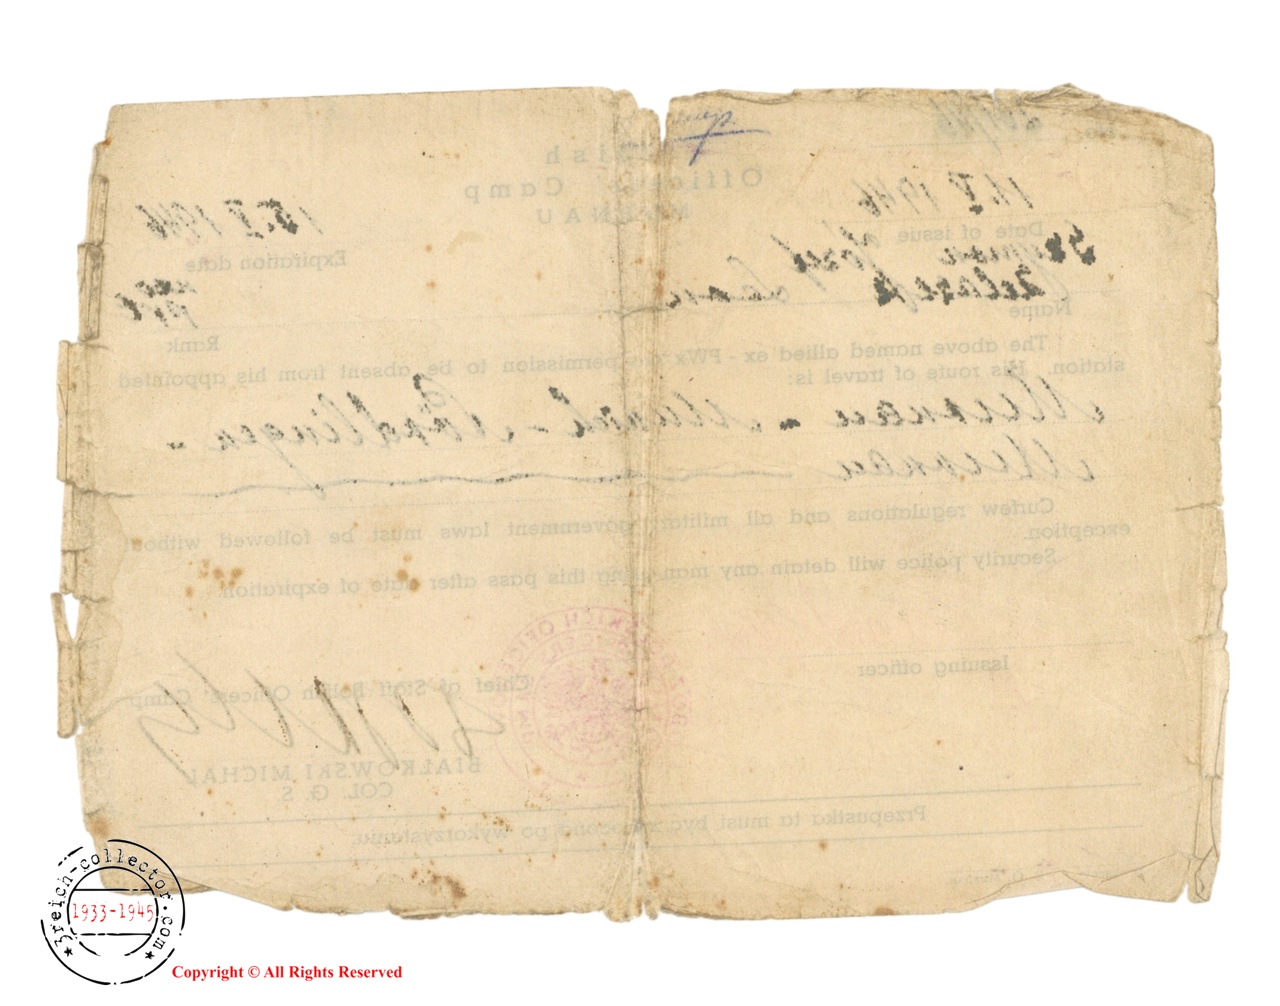 Polish
Officers Camp
MURNAU
11.V 1946
15.V 1946
Date of issue
Expiration date
Szymon Józef
Name
Rank
The above named allied ex - PWX permission to be absent from his appointed
station. His route of travel is:
Murnau - Munich - Nördlingen -
Murnau
Curfew regulations and all military government laws must be followed without
exception.
Security police will detain any man using this pass after date of expiration.
Issuing officer
Chief of Staff Polish Officers' Camp
BIAŁKOWSKI MICHAŁ
COL. G. S
Przepustka ta musi być zwrócona po wykorzystaniu.
3reich-collector.com
1933-1945
Copyright © All Rights Reserved